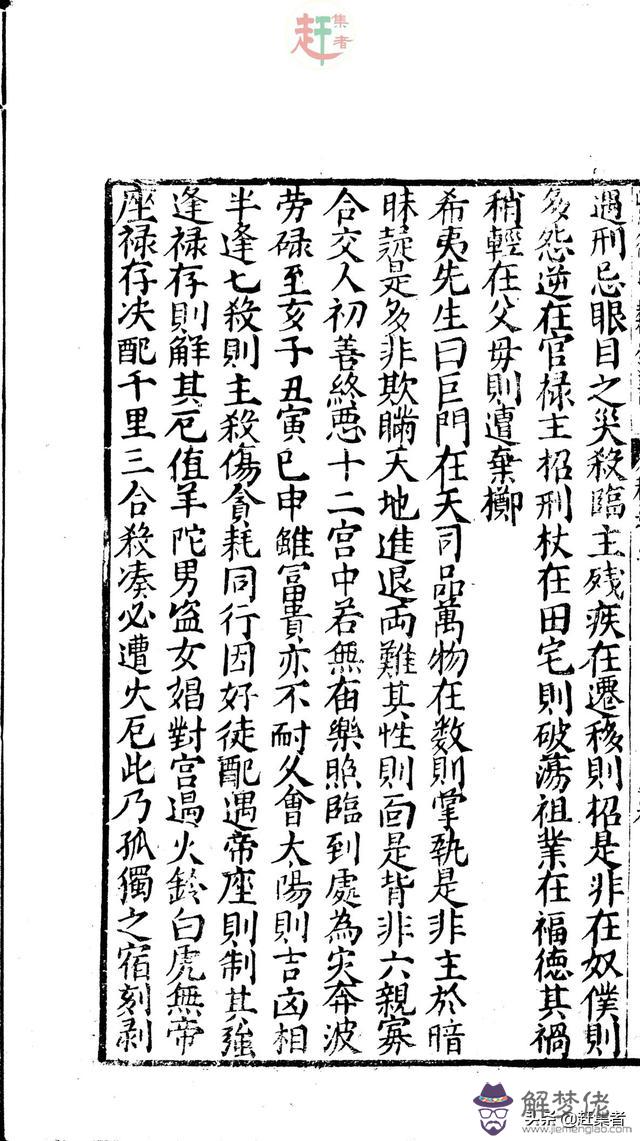 赶集者
遇刑忌眼目之災殺臨主殘疾在遷移則招是非在奴僕則
多怨逆在官祿主招刑杖在田宅則破蕩祖業在福德其禍
稍輕在父母則遭棄擲
希夷先生曰巨門在天司品萬物在數則掌執是非主於暗
昧疑是多非欺瞞天地進退兩難其性則面是背非六親寡
合交人初善終惡十二宮中若無廟樂照臨到處為災奔波
劳碌至亥子丑寅巳申雖富貴亦不耐久會太陽則吉凶相
半逢七殺則主殺傷貪耗同行因好徒配遇帝座則制其強
逢祿存則解其厄值羊陀男盗女娼對宮遇火鈴白虎無帝
座祿存决配千里三合殺凑必遭火厄此乃孤獨之宿刻剥
解梦佬
www.jiemenglao.com
头条@赶集者